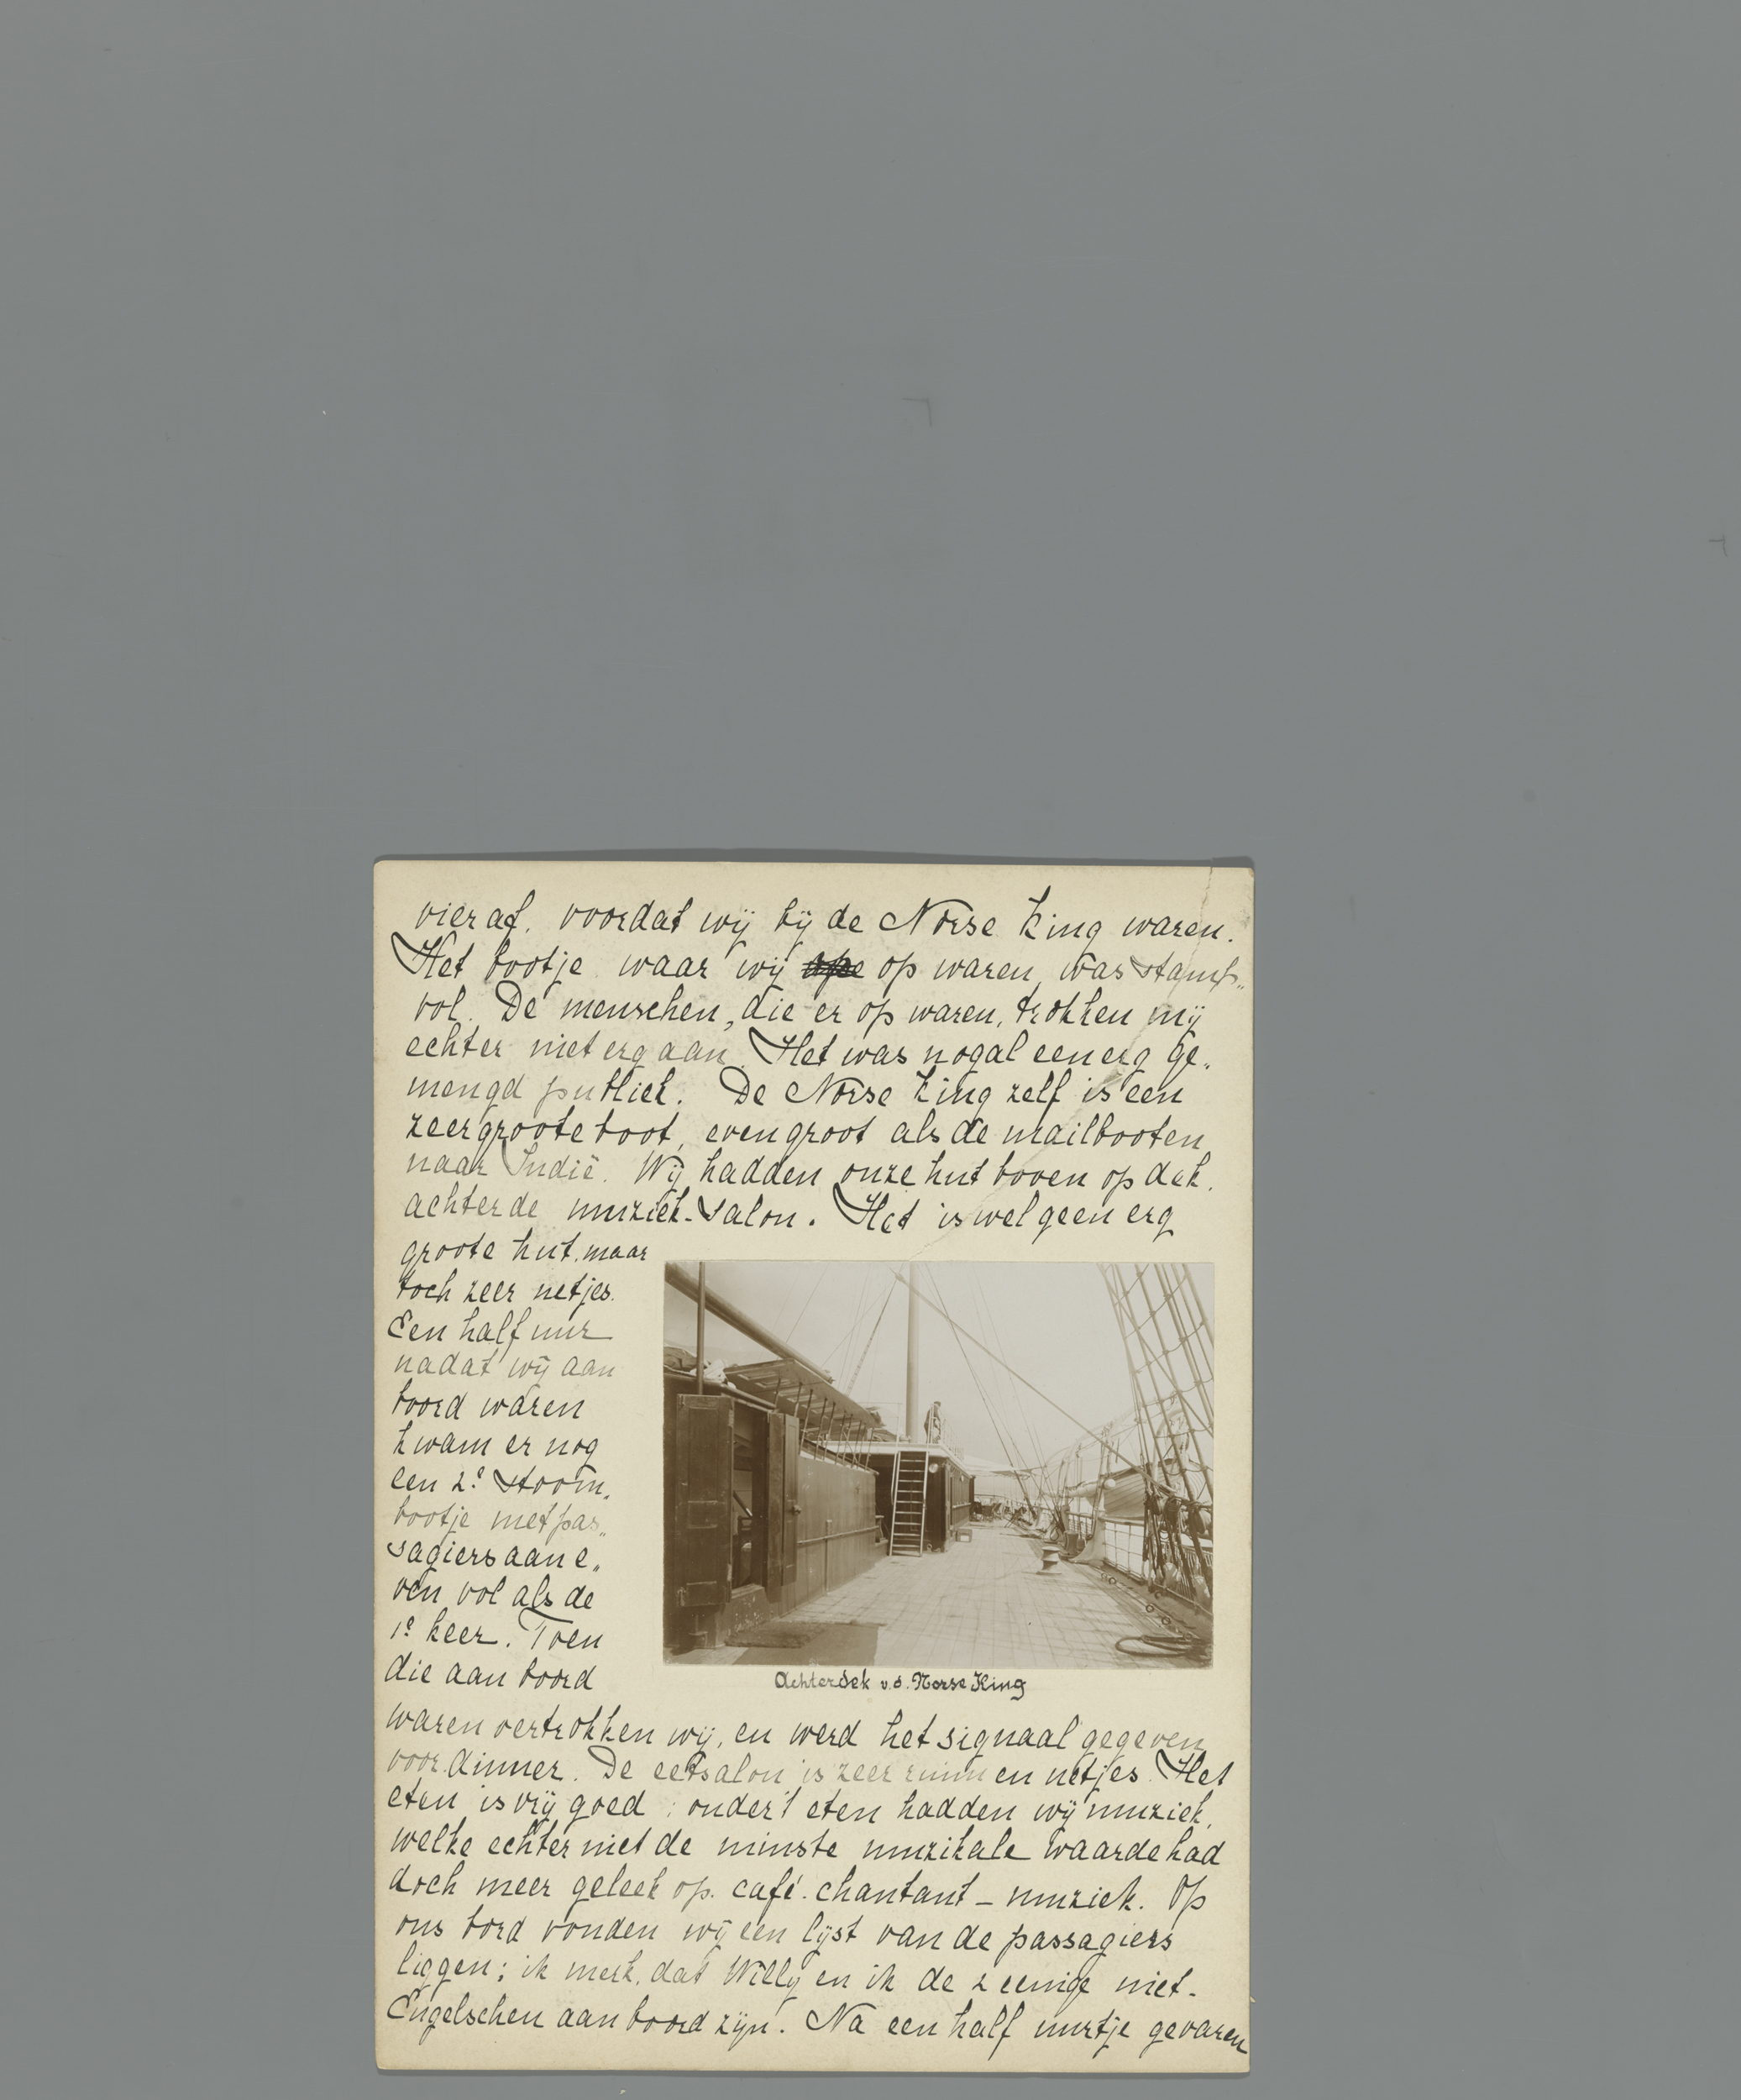 vier af, voordat wij bij de Norse King waren.
Het bootje waar wij op waren, was stamp„
vol. De menschen, die er op waren, trokken mij
echter niet erg aan. Het was nogal een erg ge„
mengd publiek. De Norse King zelf is een
zeer groote boot, even groot als de mailbooten
naar Indië. Wij hadden onze hut boven op dek,
achter de muziek-salon. Het is wel geen erg
groote hut, maar
toch zeer netjes.
Een half uur
nadat wij aan
boord waren
kwam er nog
een 2e stoom„
bootje met pas„
sagiers aan e„
ven vol als de
1e keer. Toen
die aan boord
Achterdek v.d. Norse King
waren vertrokken wij, en werd het signaal gegeven
voor dinner. De eetsalon is zeer ruim en netjes. Het
eten is vrij goed; onder 't eten hadden wij muziek,
welke echter niet de minste muzikale waarde had
doch meer geleek op café-chantant-muziek. Op
ons bord vonden wij een lijst van de passagiers
liggen; ik merk, dat Willy en ik de 2 eenige niet-
Engelschen aan boord zijn. Na een half uurtje gevaren